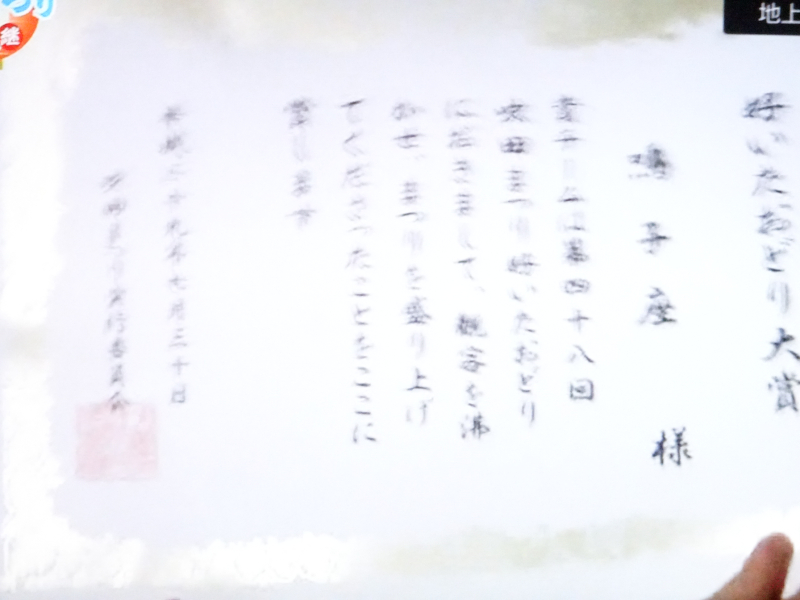 地上
好いたおどり大賞
鳴子座 様
貴チームは第四十八回
吹田まつり好いたおどり
におきまして、観客を沸
かせ、まつりを盛り上げ
てくださったことをここに
賞します
平成二十九年七月三十日
吹田まつり実行委員会
つり
継